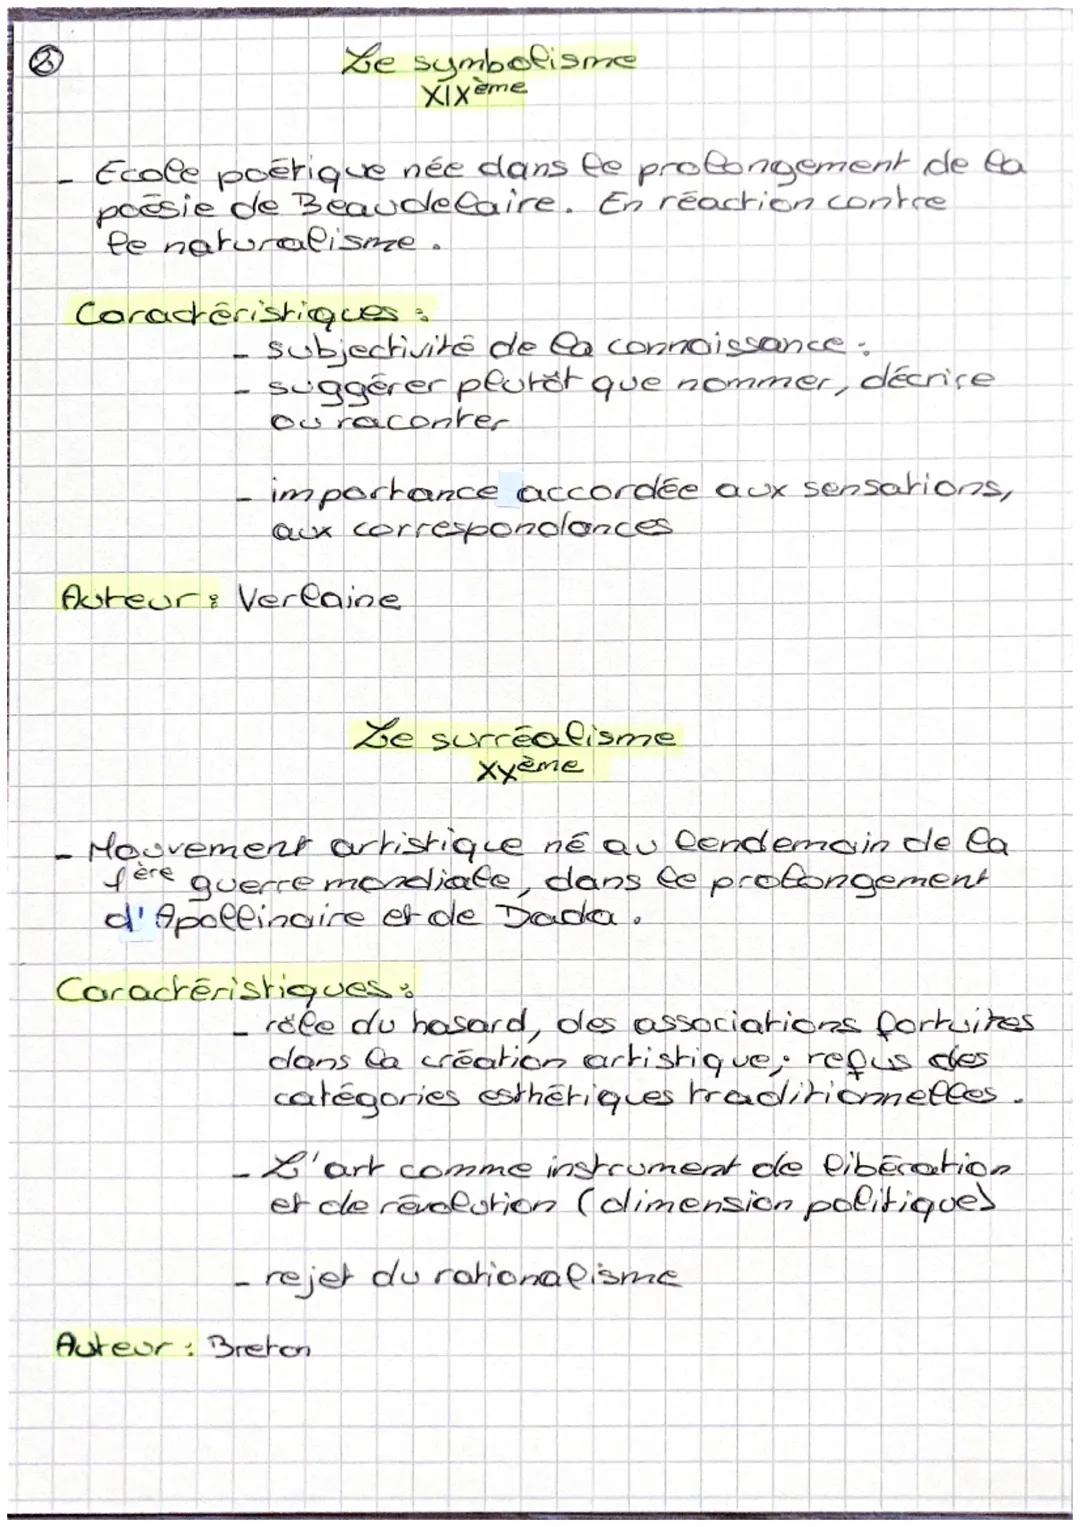 ②
Le symbolisme
XIXème
- Ecole poétique née dans le prolongement de la
poésie de Beaudelaire. En réaction contre
le naturalisme.
Caractéristiques :
- subjectivité de la connaissance :
- suggérer plutôt que nommer, décrire
ou raconter
- importance accordée aux sensations,
aux correspondances
Auteur : Verlaine
Le surréalisme
XXème
- Mouvement artistique né au lendemain de la
1ère guerre mondiale, dans le prolongement
d'Apollinaire et de Dada.
Caractéristiques :
- rôle du hasard, des associations fortuites
dans la création artistique ; refus des
catégories esthétiques traditionnelles.
- L'art comme instrument de libération
et de révolution (dimension politique)
- rejet du rationalisme
Auteur : Breton